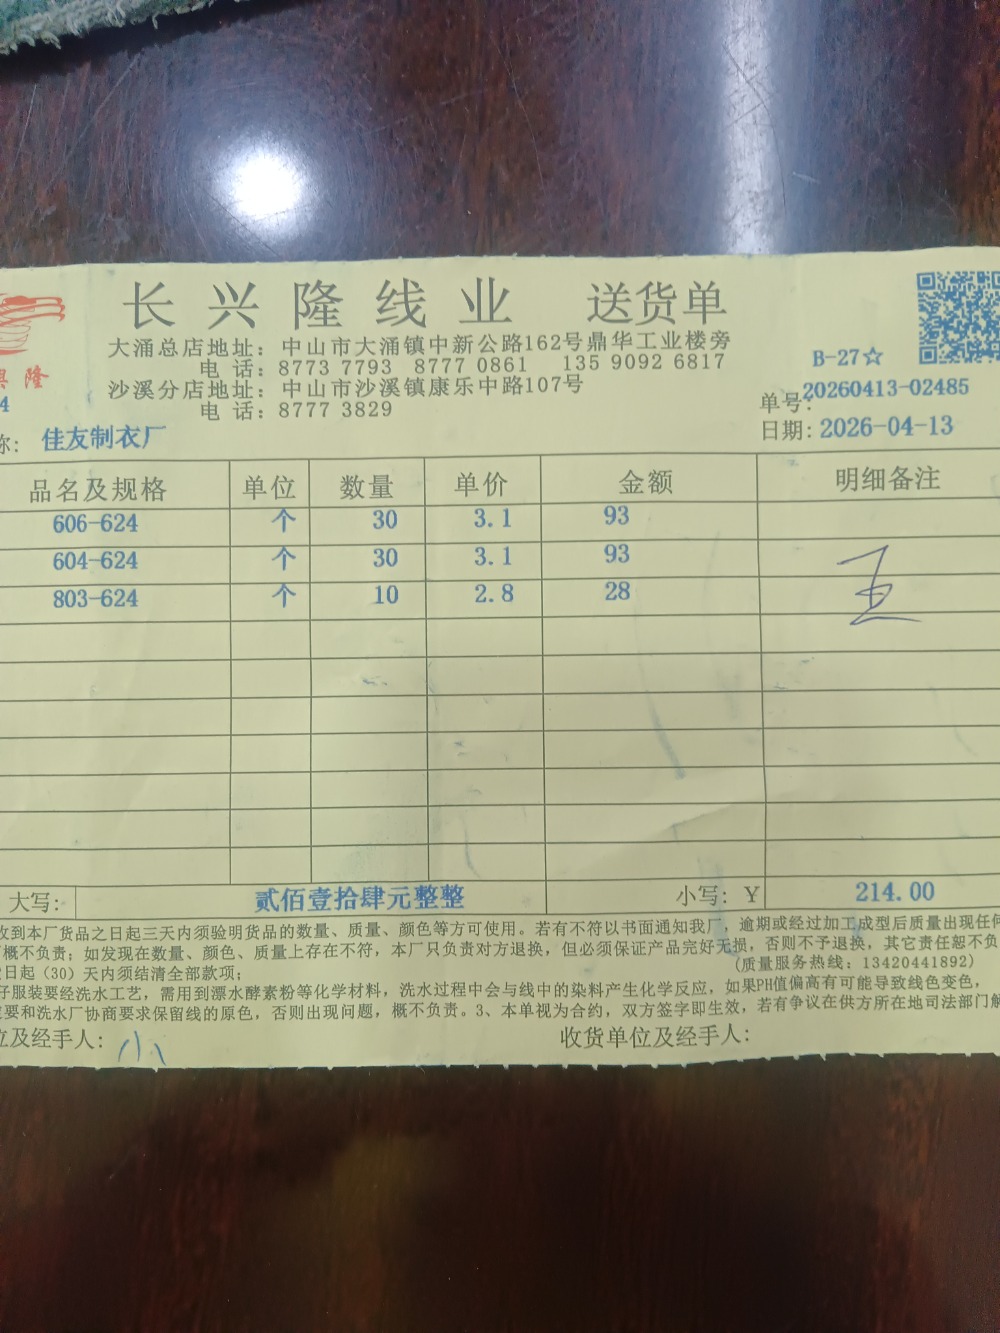 长兴隆线业 送货单
大涌总店地址：中山市大涌镇中新公路162号鼎华工业楼旁
电 话：8773 7793 8777 0861 135 9092 6817
沙溪分店地址：中山市沙溪镇康乐中路107号
电 话：8777 3829
隆
4
B-27☆
单号：20260413-02485
日期：2026-04-13
称：佳友制衣厂
品名及规格 单位 数量 单价 金额 明细备注
606-624 个 30 3.1 93
604-624 个 30 3.1 93
803-624 个 10 2.8 28
大写：贰佰壹拾肆元整整 小写：Y 214.00
收到本厂货品之日起三天内须验明货品的数量、质量、颜色等方可使用。若有不符以书面通知我厂，逾期或经过加工成型后质量出现任何
概不负责；如发现在数量、颜色、质量上存在不符，本厂只负责对方退换，但必须保证产品完好无损，否则不予退换，其它责任恕不负
日起（30）天内须结清全部款项； (质量服务热线：13420441892)
子服装要经洗水工艺，需用到漂水酵素粉等化学材料，洗水过程中会与线中的染料产生化学反应，如果PH值偏高有可能导致线色变色，
要和洗水厂协商要求保留线的原色，否则出现问题，概不负责。3、本单视为合约，双方签字即生效，若有争议在供方所在地司法部门解
位及经手人：小 收货单位及经手人：